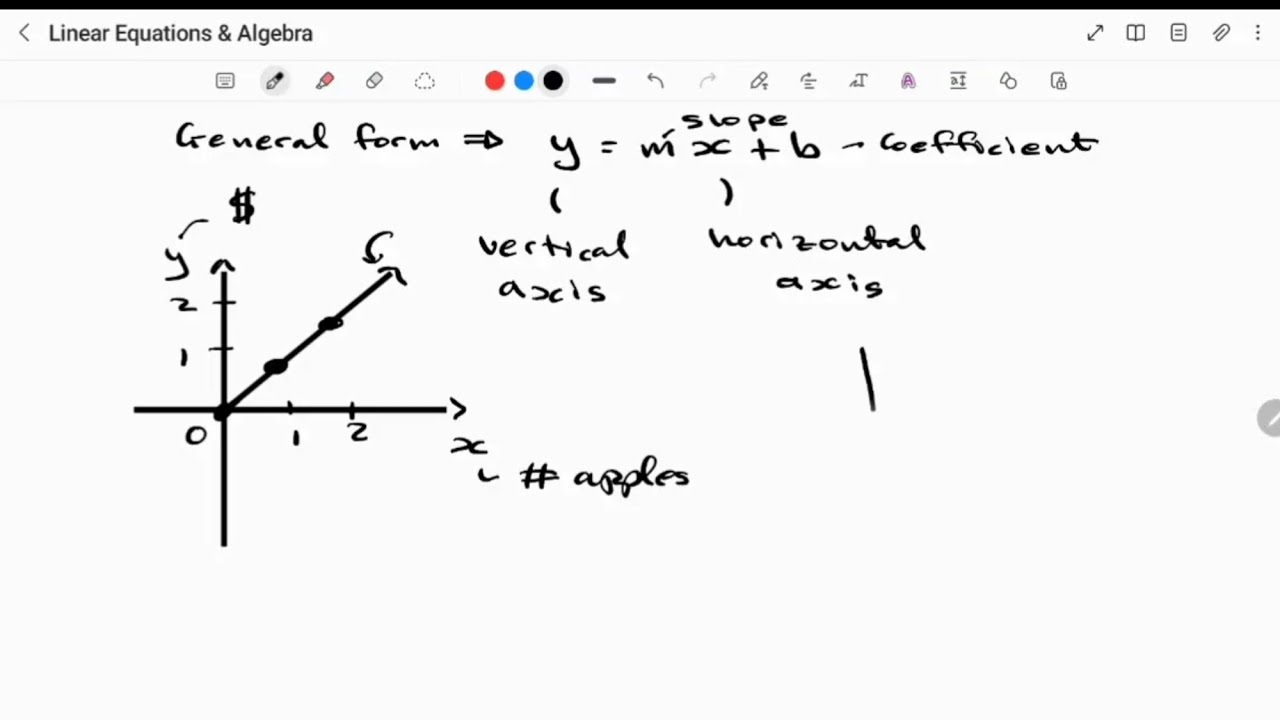 Linear Equations & Algebra
slope
General form ⇒ y = mx + b - coefficient
$
vertical horizontal
y
axis axis
2
1
0 1 2
x
# apples